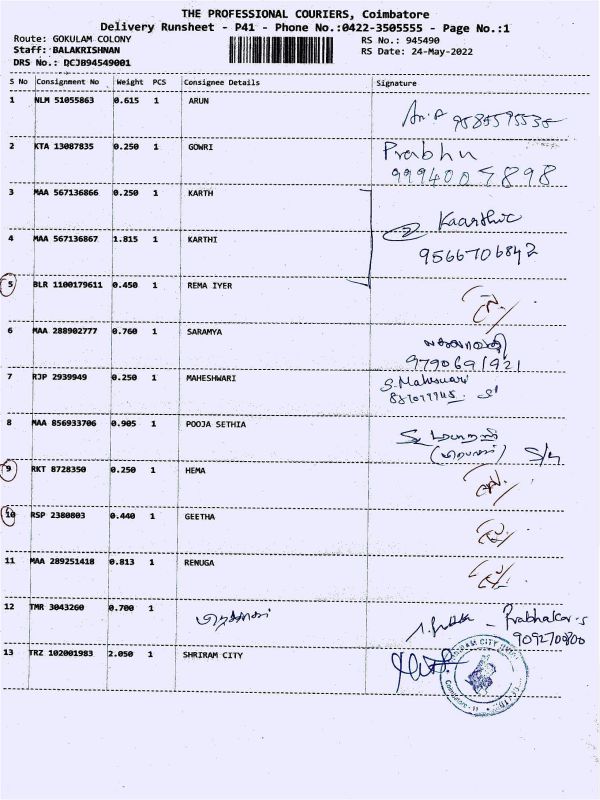 THE PROFESSIONAL COURIERS, Coimbatore
Delivery Runsheet - P41 - Phone No.:0422-3505555 - Page No.:1
Route: GOKULAM COLONY RS No.: 945490
Staff: BALAKRISHNAN RS Date: 24-May-2022
DRS No.: DCJB94549001
S No Consignment No Weight PCS Consignee Details Signature
1 NLM 51055863 0.615 1 ARUN
2 KTA 13087835 0.250 1 GOWRI Prabhu
3 MAA 567136866 0.250 1 KARTH Kaarthic
4 MAA 567136867 1.815 1 KARTHI 9566706842
5 BLR 1100179611 0.450 1 REMA IYER
6 MAA 288902777 0.760 1 SARAMYA
9790691921
7 RJP 2939949 0.250 1 MAHESHWARI S. Maheswari
8 MAA 856933706 0.905 1 POOJA SETHIA
9 RKT 8728350 0.250 1 HEMA
10 RSP 2380803 0.440 1 GEETHA
11 MAA 289251418 0.813 1 RENUGA
12 TMR 3043260 0.700 1 Prabhakar.S
9092700800
13 TRZ 102001983 2.050 1 SHRIRAM CITY